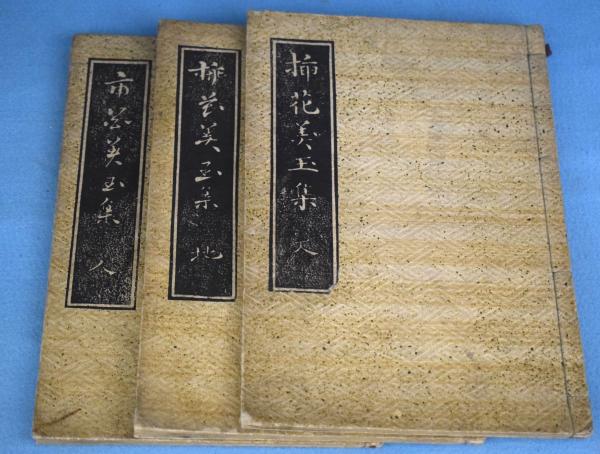 挿花美玉集 天
挿花美玉集 地
挿花美玉集 人